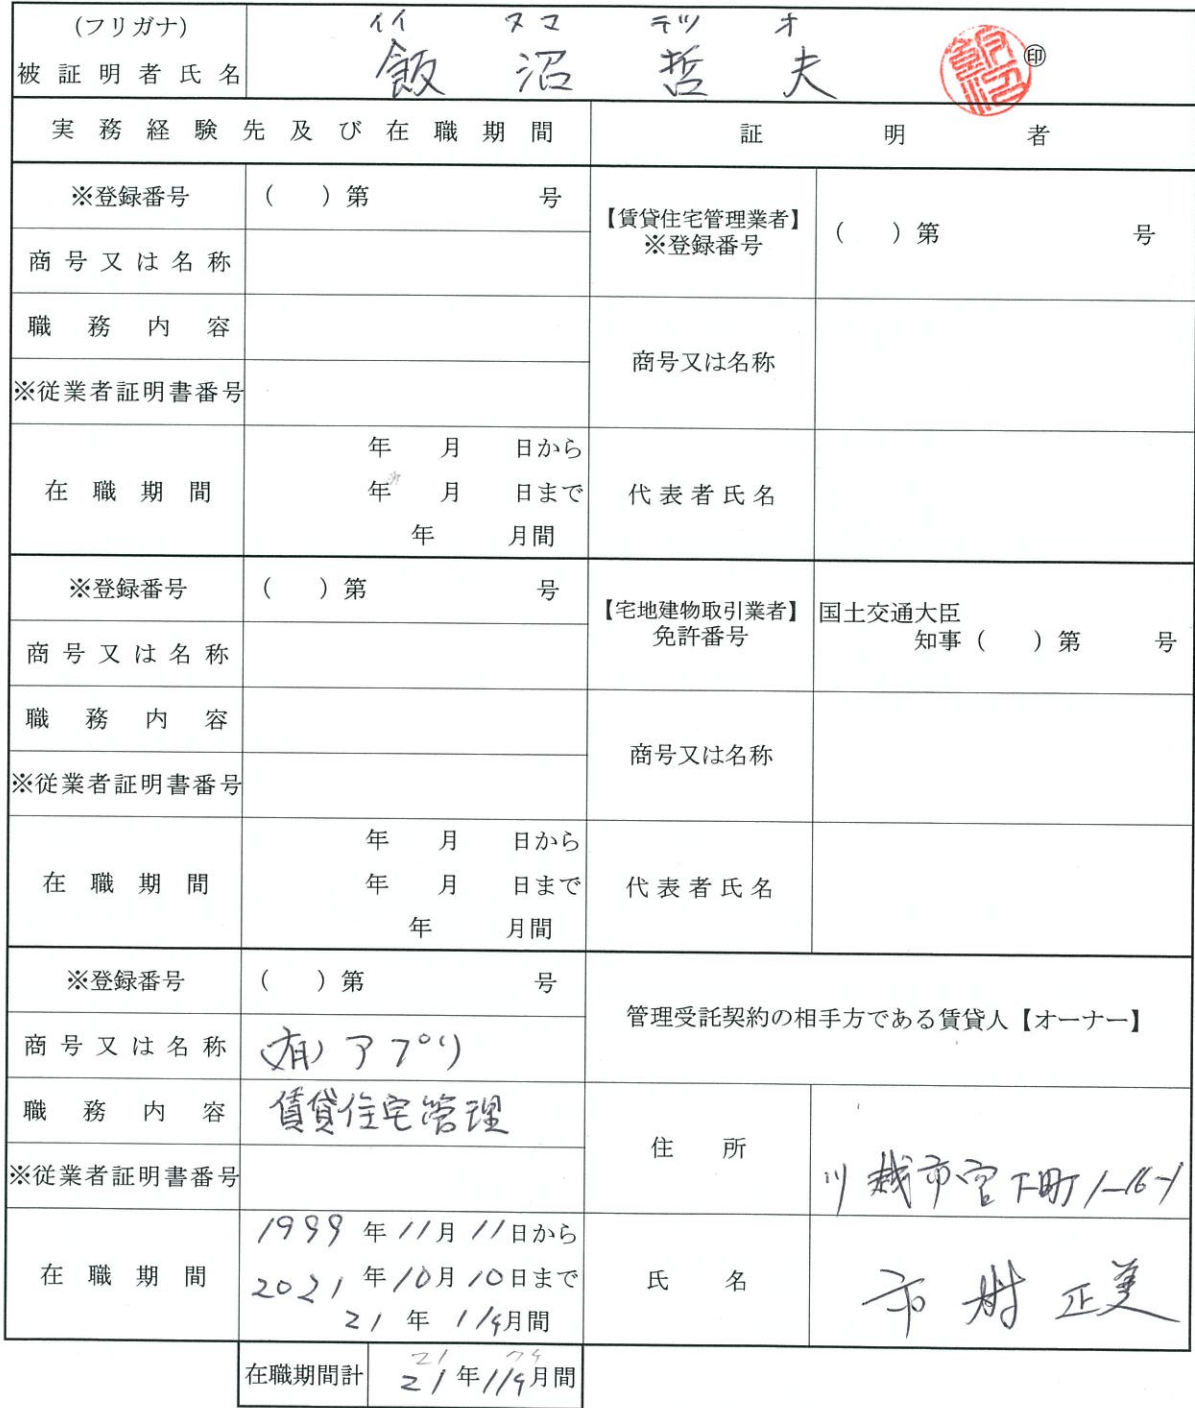 (フリガナ) イイ ヌマ テツ オ
被証明者氏名 飯沼 哲夫 ㊞
実務経験先及び在職期間 証明者
※登録番号 ( )第 号
商号又は名称
職務内容
※従業者証明書番号
在職期間
年 月 日から
年 月 日まで
年 月間
【賃貸住宅管理業者】
※登録番号
( )第 号
商号又は名称
代表者氏名
※登録番号 ( )第 号
商号又は名称
職務内容
※従業者証明書番号
在職期間
年 月 日から
年 月 日まで
年 月間
【宅地建物取引業者】
免許番号
国土交通大臣
知事( )第 号
商号又は名称
代表者氏名
※登録番号 ( )第 号
商号又は名称 (有)アプリ
職務内容 賃貸住宅管理
※従業者証明書番号
在職期間
1999年11月11日から
2021年10月10日まで
21年11ヶ月間
管理受託契約の相手方である賃貸人【オーナー】
住所 川越市宮下町1-16-1
氏名 正美
在職期間計 21年11ヶ月間